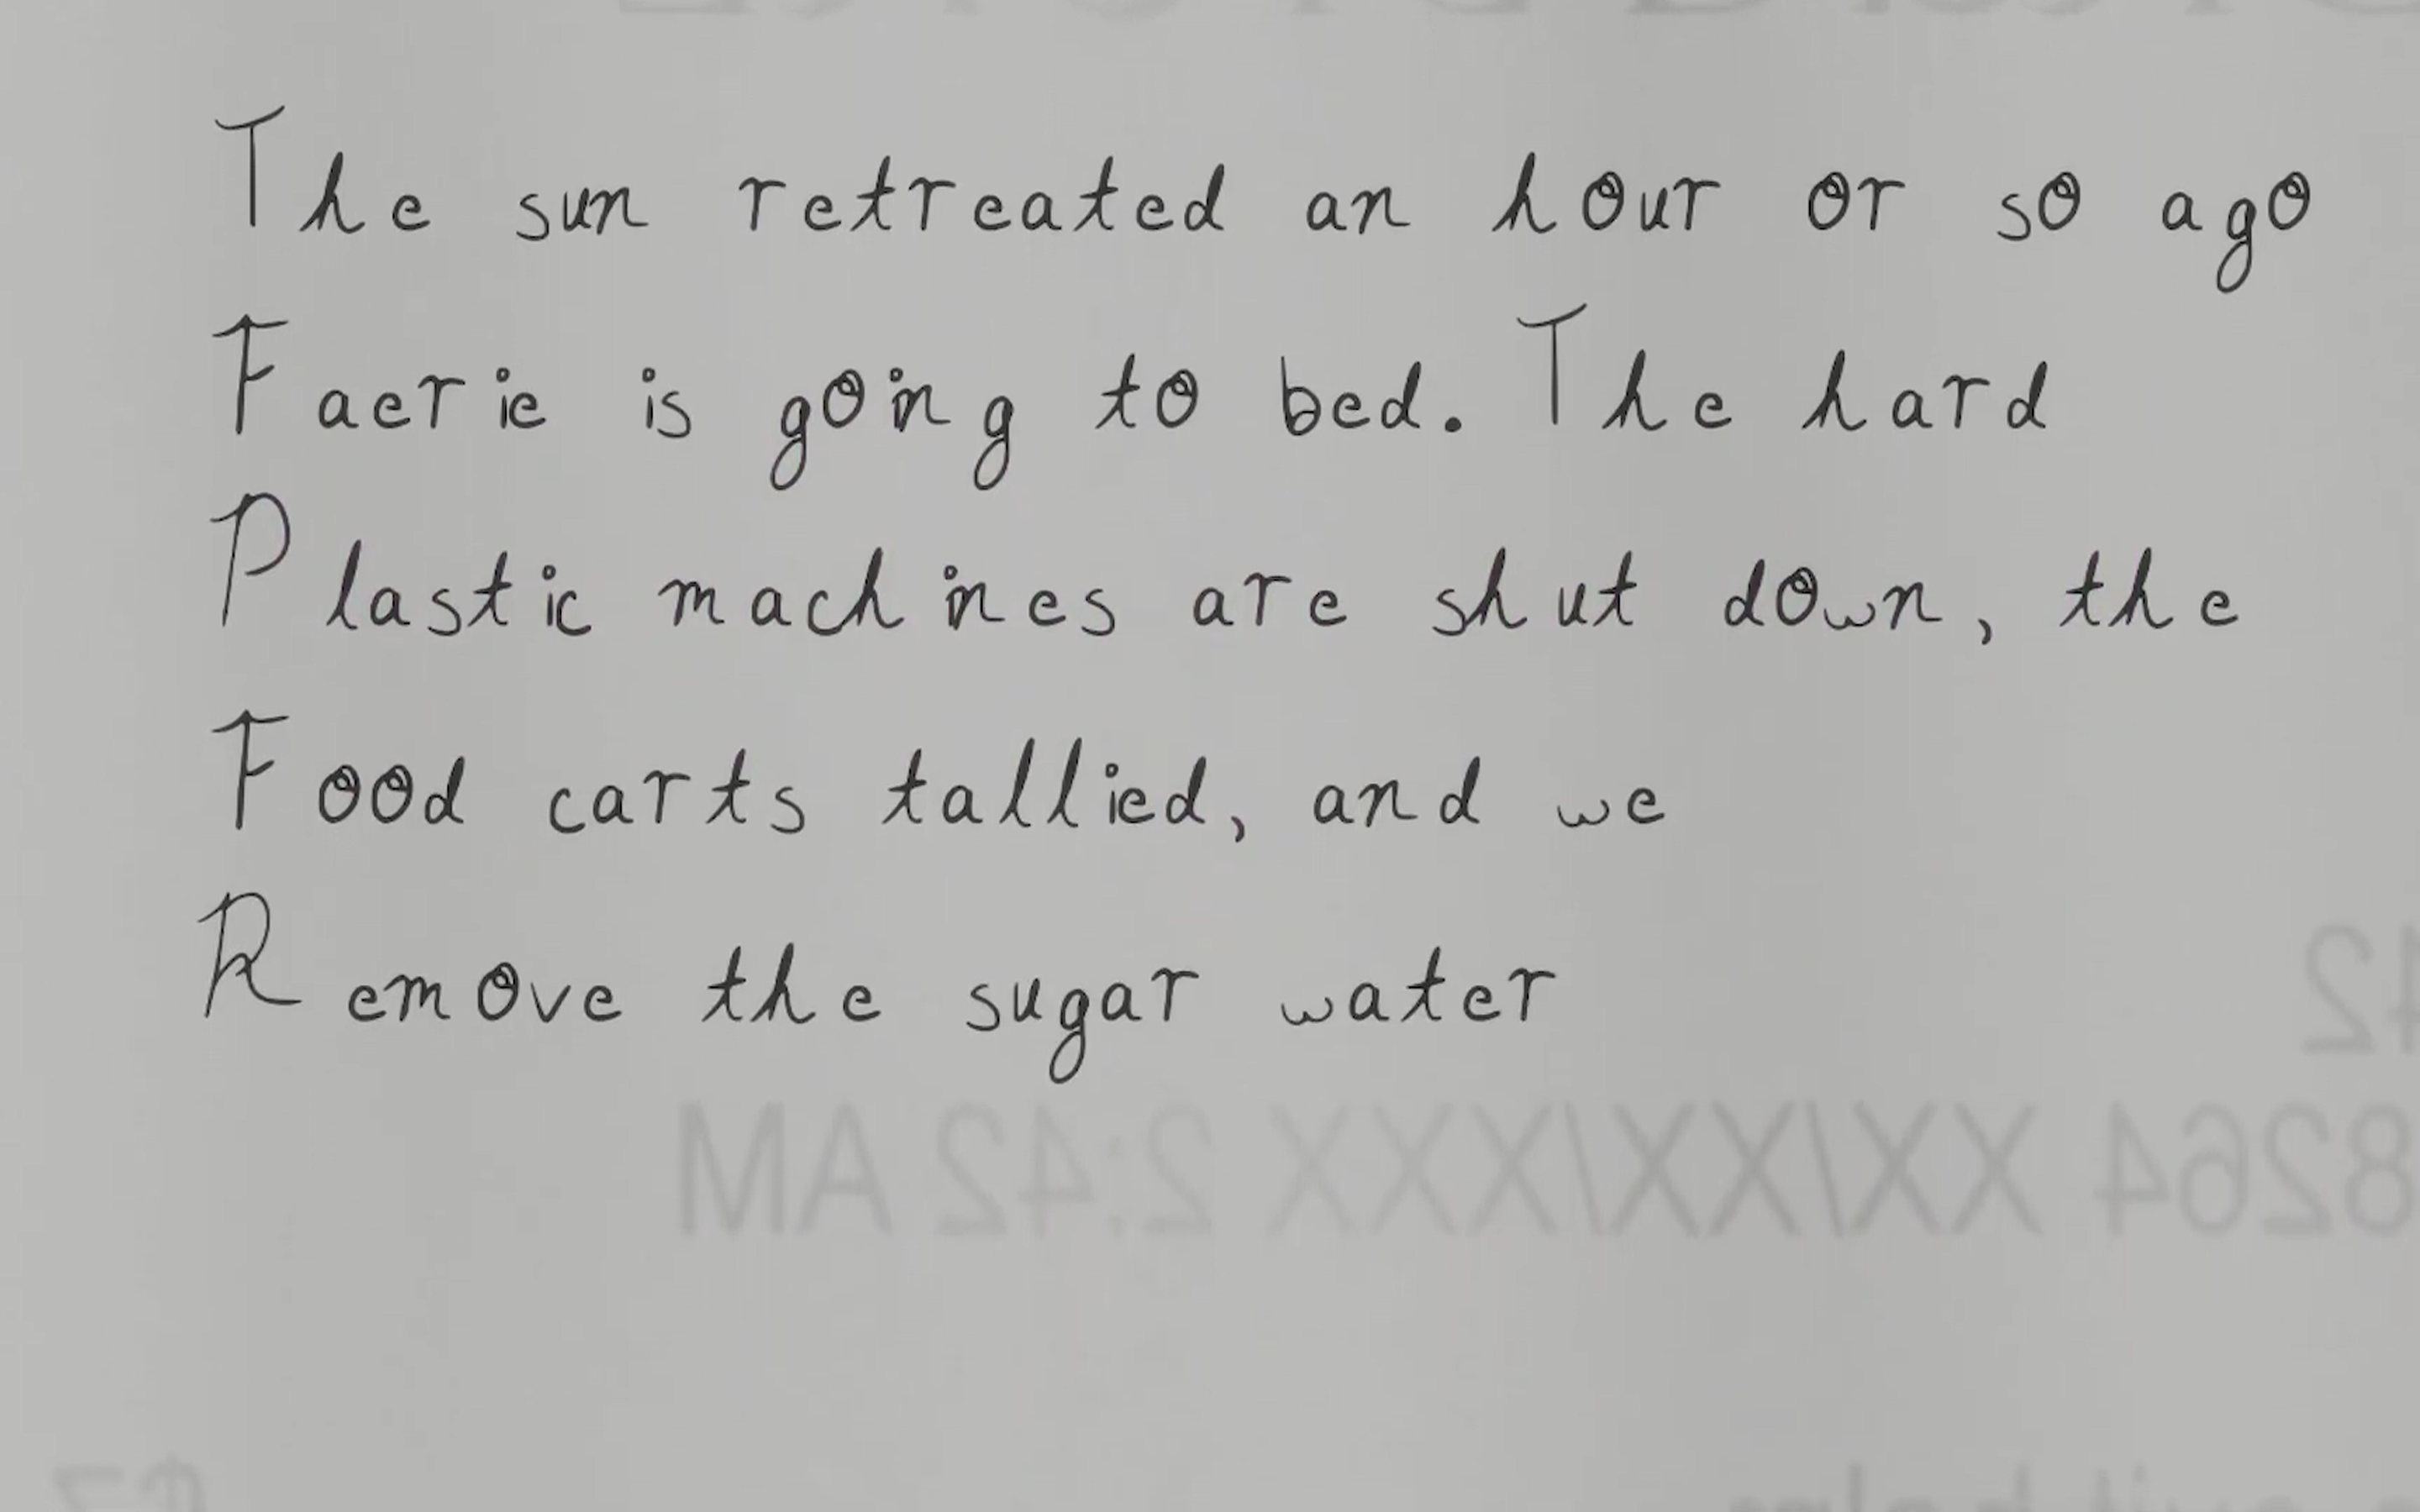 The sun retreated an hour or so ago
Faerie is going to bed. The hard
Plastic machines are shut down, the
Food carts tallied, and we
Remove the sugar water
42
8264 XX/XX/XXXX 2:42 AM